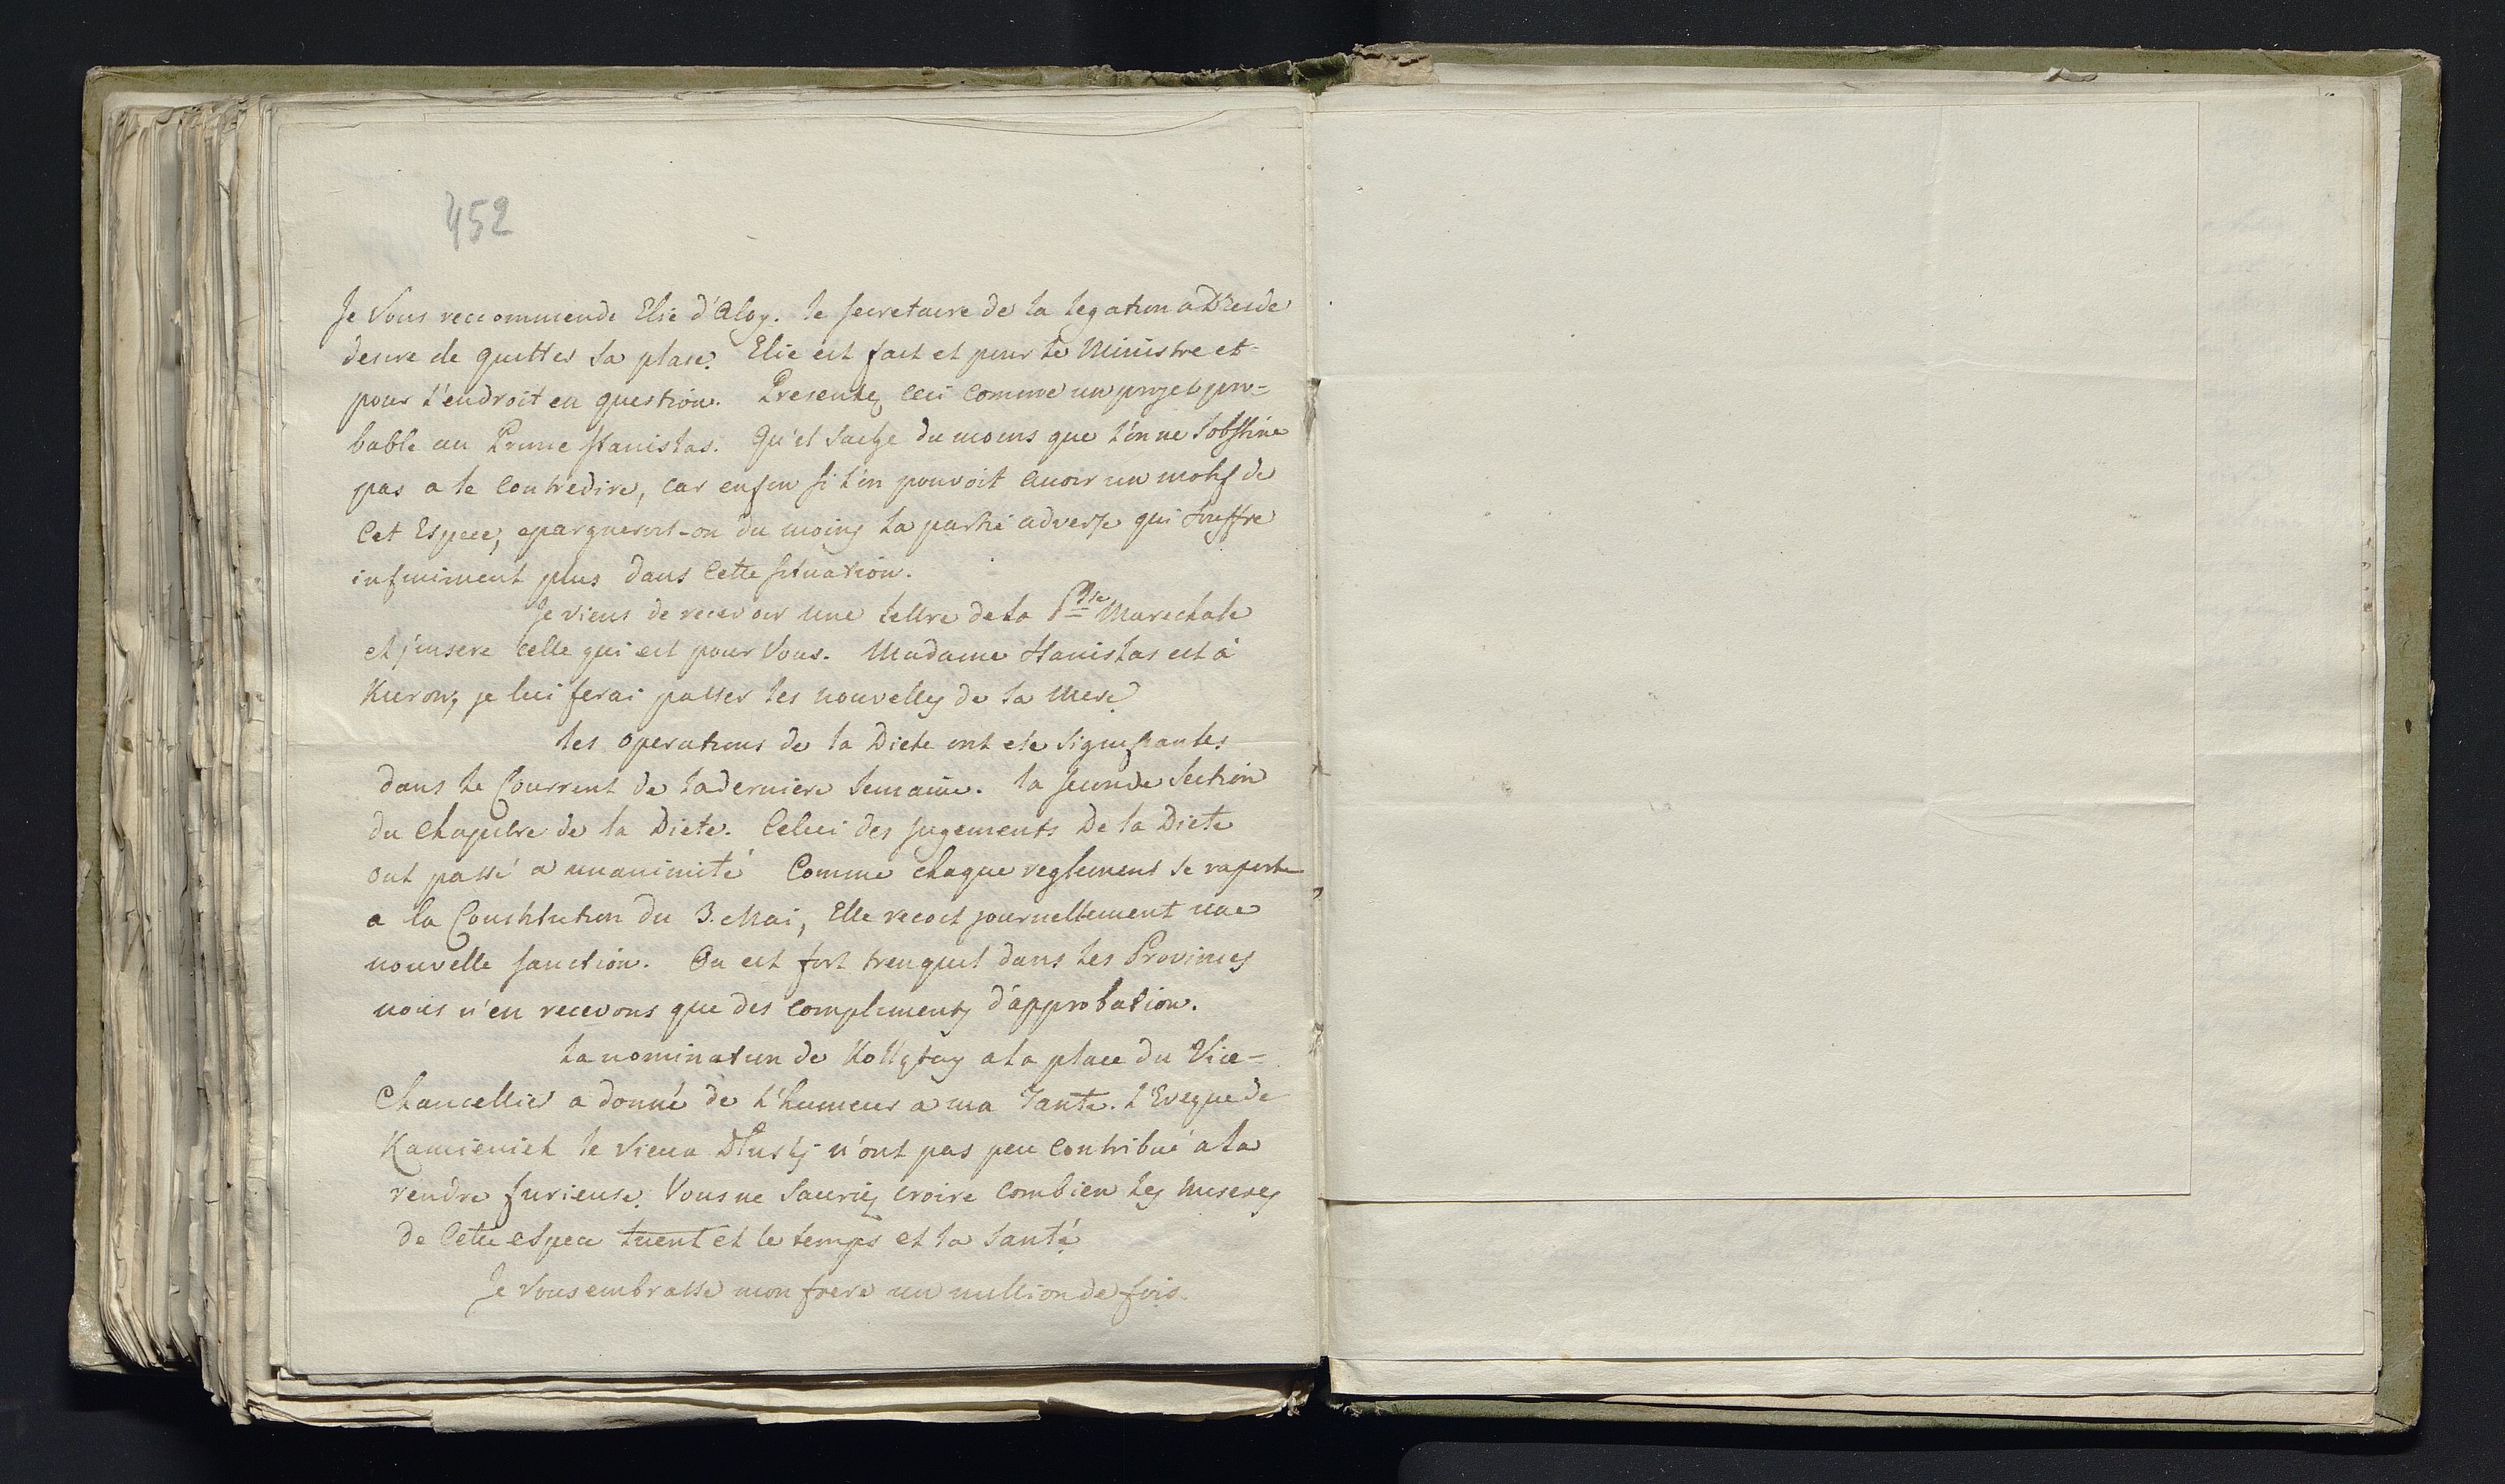 452
Je Vous reccommende Elie d'Aloy. le secretaire de la legation a Dresde
desire de quitter sa place. Elie est fait et pour le Ministre et
pour l'endroit en question. Presentez ceci comme un projet pro-
bable au Prince Stanislas. Qu'il sache du moins que l'on ne s'obstine
pas a le contredire, car enfin si l'on pouvoit avoir un motif de
cet Espece, epargneroit-on du moins la partie adverse qui souffre
infiniment plus dans cette situation.
Je viens de recevoir une lettre de la Psse Marechale
et j'insere celle qui est pour Vous. Madame Stanislas est à
Kurow, je lui ferai passer les nouvelles de sa Mere.
les operations de la Diete ont ete signifiantes
dans le Courrent de la derniere semaine. la seconde section
du chapitre de la Diete. Celui des jugements de la Diete
ont passé a unanimité Comme chaque reglement se raporte
a la Constitution du 3. Mai, Elle recoit journellement une
nouvelle sanction. On est fort trenquil dans les Provinces
nous n'en recevons que des complements d'approbation.
La nomination de Kollątay a la place du Vice-
Chancellier a donné de l'humeur a ma Tante. L'Eveque de
Kamieniek le vieux Dłuski n'ont pas peu contribué a la
rendre furieuse. Vous ne sauriez croire combien les miseres
de cette espece tuent et le temps et la santé
Je vous embrasse mon frere un million de fois.